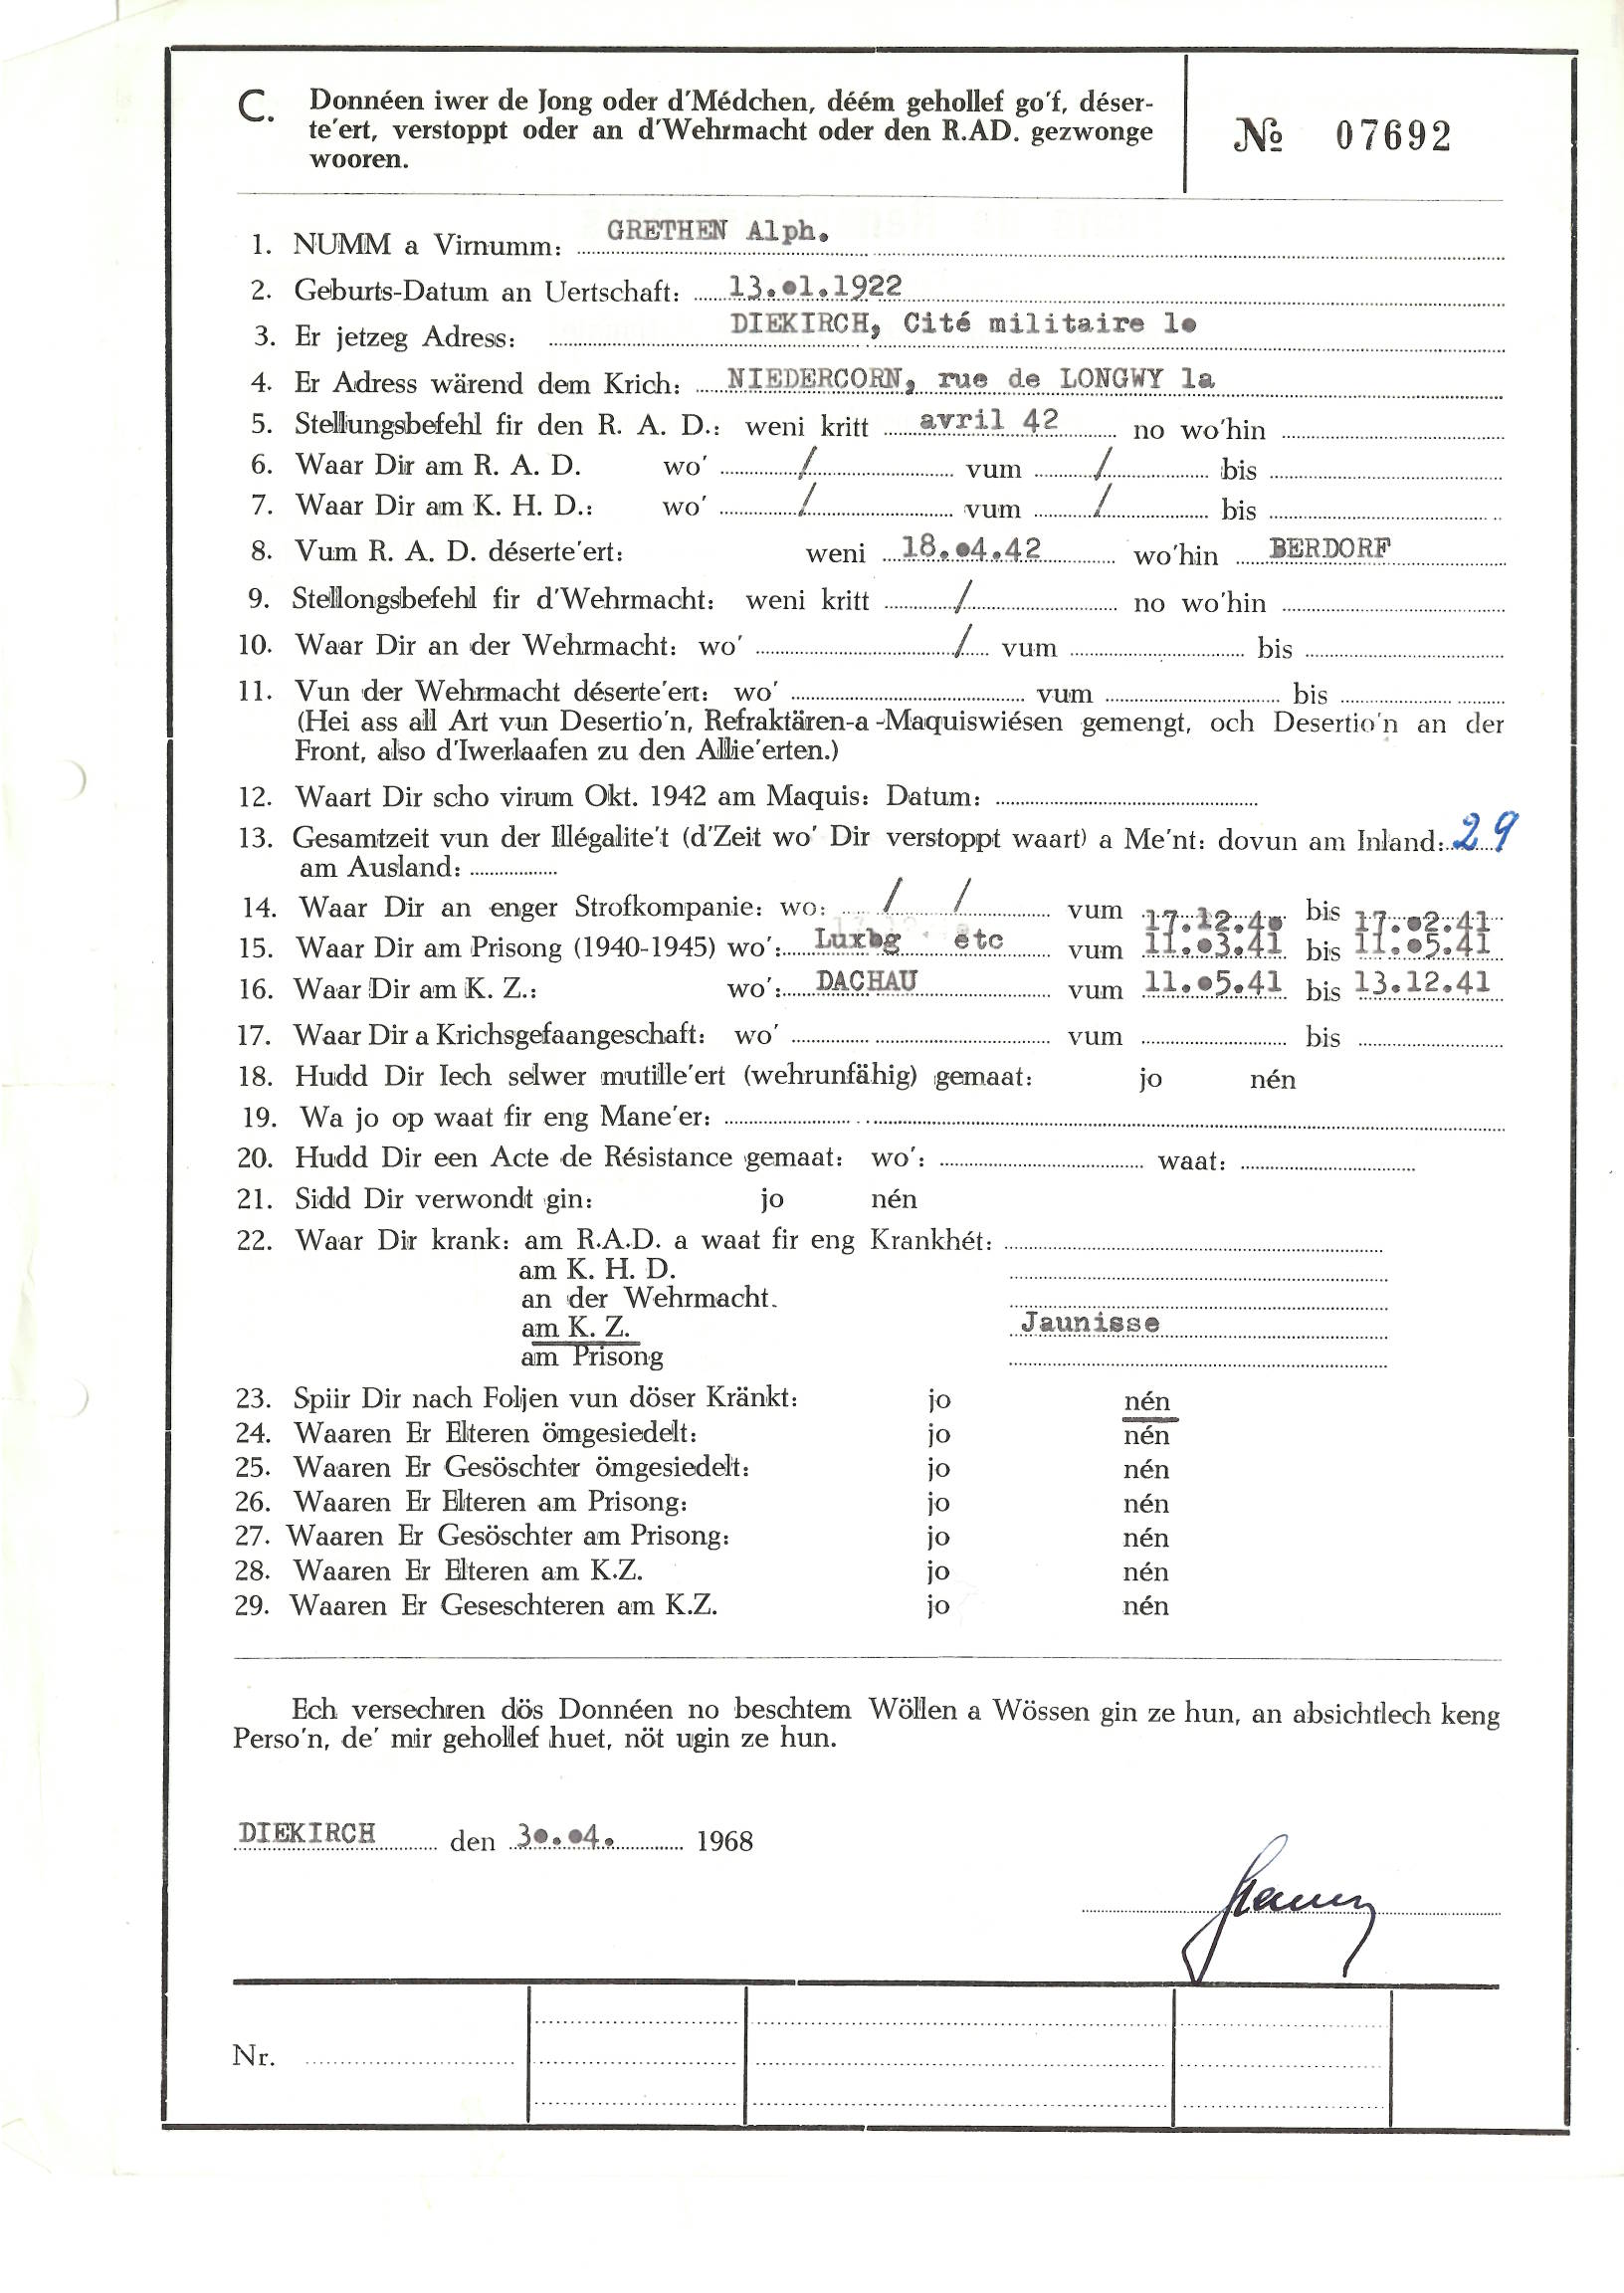 C. Donnéen iwer de Jong oder d'Médchen, déém gehollef go'f, déser-
te'ert, verstoppt oder an d'Wehrmacht oder den R.AD. gezwonge
wooren.
№ 07692
1. NUMM a Virnumm: GRETHEN Alph.
2. Geburts-Datum an Uertschaft: 13.01.1922
3. Er jetzeg Adress: DIEKIRCH, Cité militaire 10
4. Er Adress wärend dem Krich: NIEDERCORN, rue de LONGWY 1a
5. Stellungsbefehl fir den R. A. D.: weni kritt avril 42 no wo'hin
6. Waar Dir am R. A. D. wo' / vum / bis
7. Waar Dir am K. H. D.: wo' / vum / bis
8. Vum R. A. D. déserte'ert: weni 18.04.42 wo'hin BERDORF
9. Stellongsbefehl fir d'Wehrmacht: weni kritt / no wo'hin
10. Waar Dir an der Wehrmacht: wo' / vum bis
11. Vun der Wehrmacht déserte'ert: wo' vum bis
(Hei ass all Art vun Desertio'n, Refraktären-a-Maquiswiésen gemengt, och Desertio'n an der
Front, also d'Iwerlaafen zu den Allie'erten.)
12. Waart Dir scho virum Okt. 1942 am Maquis: Datum:
13. Gesamtzeit vun der Illégalite't (d'Zeit wo' Dir verstoppt waart) a Me'nt: dovun am Inland: 29
am Ausland:
14. Waar Dir an enger Strofkompanie: wo: / / vum 17.12.40 bis 17.02.41
15. Waar Dir am Prisong (1940-1945) wo': Luxbg etc vum 11.03.41 bis 11.05.41
16. Waar Dir am K. Z.: wo': DACHAU vum 11.05.41 bis 13.12.41
17. Waar Dir a Krichsgefaangeschaft: wo' vum bis
18. Hudd Dir Iech selwer mutille'ert (wehrunfähig) gemaat: jo nén
19. Wa jo op waat fir eng Mane'er:
20. Hudd Dir een Acte de Résistance gemaat: wo': waat:
21. Sidd Dir verwondt gin: jo nén
22. Waar Dir krank: am R.A.D. a waat fir eng Krankhét:
am K. H. D.
an der Wehrmacht.
am K. Z. Jaunisse
am Prisong
23. Spiir Dir nach Foljen vun döser Kränkt: jo nén
24. Waaren Er Elteren ömgesiedelt: jo nén
25. Waaren Er Gesöschter ömgesiedelt: jo nén
26. Waaren Er Elteren am Prisong: jo nén
27. Waaren Er Gesöschter am Prisong: jo nén
28. Waaren Er Elteren am K.Z. jo nén
29. Waaren Er Geseschteren am K.Z. jo nén
Ech versechren dös Donnéen no beschtem Wöllen a Wössen gin ze hun, an absichtlech keng
Perso'n, de' mir gehollef huet, nöt ugin ze hun.
DIEKIRCH den 30.04. 1968
Nr.